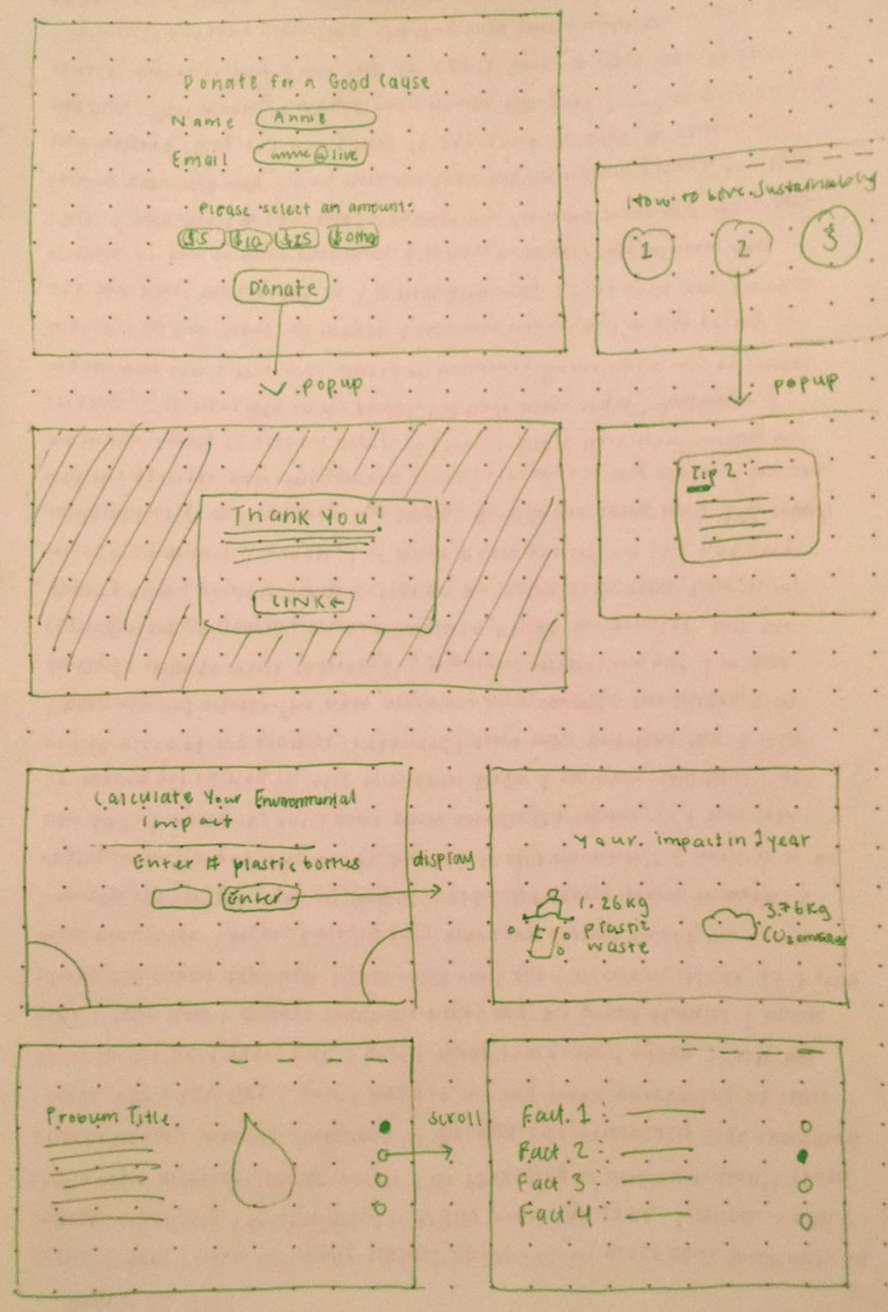 Donate for a Good Cause
Name Annie
Email annie@live
Please select an amount:
$5 $10 $25 $ other
Donate
popup
How to Live Sustainably
1 2 3
popup
Thank You!
LINK
Tip 2:
Calculate Your Environmental
Impact
Enter # plastic bottles
Enter
display
Your impact in 1 year
1.26kg
plastic
waste
3.76kg
CO2 emissions
Problem Title
scroll
Fact 1:
Fact 2:
Fact 3:
Fact 4: